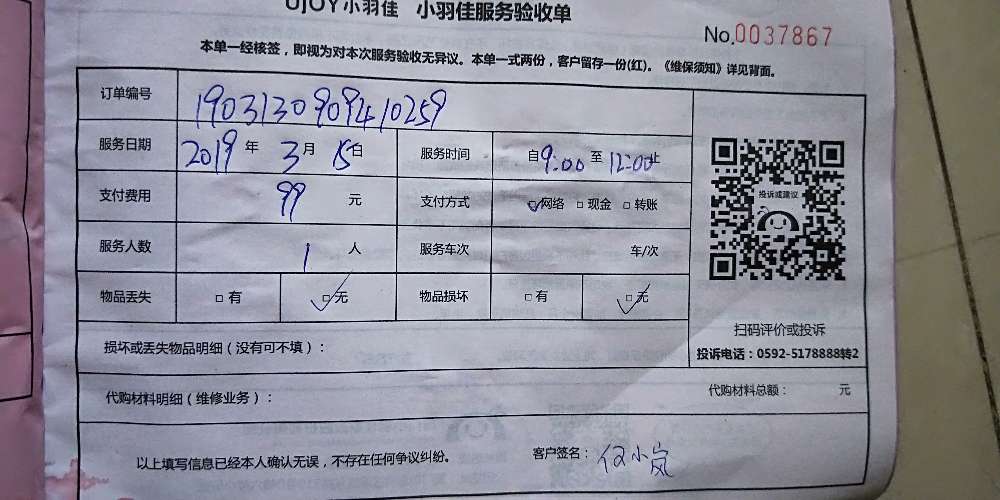 UJOY小羽佳 小羽佳服务验收单
No.0037867
本单一经核签，即视为对本次服务验收无异议。本单一式两份，客户留存一份(红)。《维保须知》详见背面。
订单编号 1903130909410259
服务日期 2019 年 3 月 15 日 服务时间 自 9:00 至 12:00 止
支付费用 99 元 支付方式 ☑网络 □现金 □转账
服务人数 1 人 服务车次 车/次
物品丢失 □有 ☑无 物品损坏 □有 ☑无
投诉或建议
扫码评价或投诉
投诉电话：0592-5178888转2
损坏或丢失物品明细（没有可不填）：
代购材料明细（维修业务）： 代购材料总额： 元
以上填写信息已经本人确认无误，不存在任何争议纠纷。 客户签名： 小岚